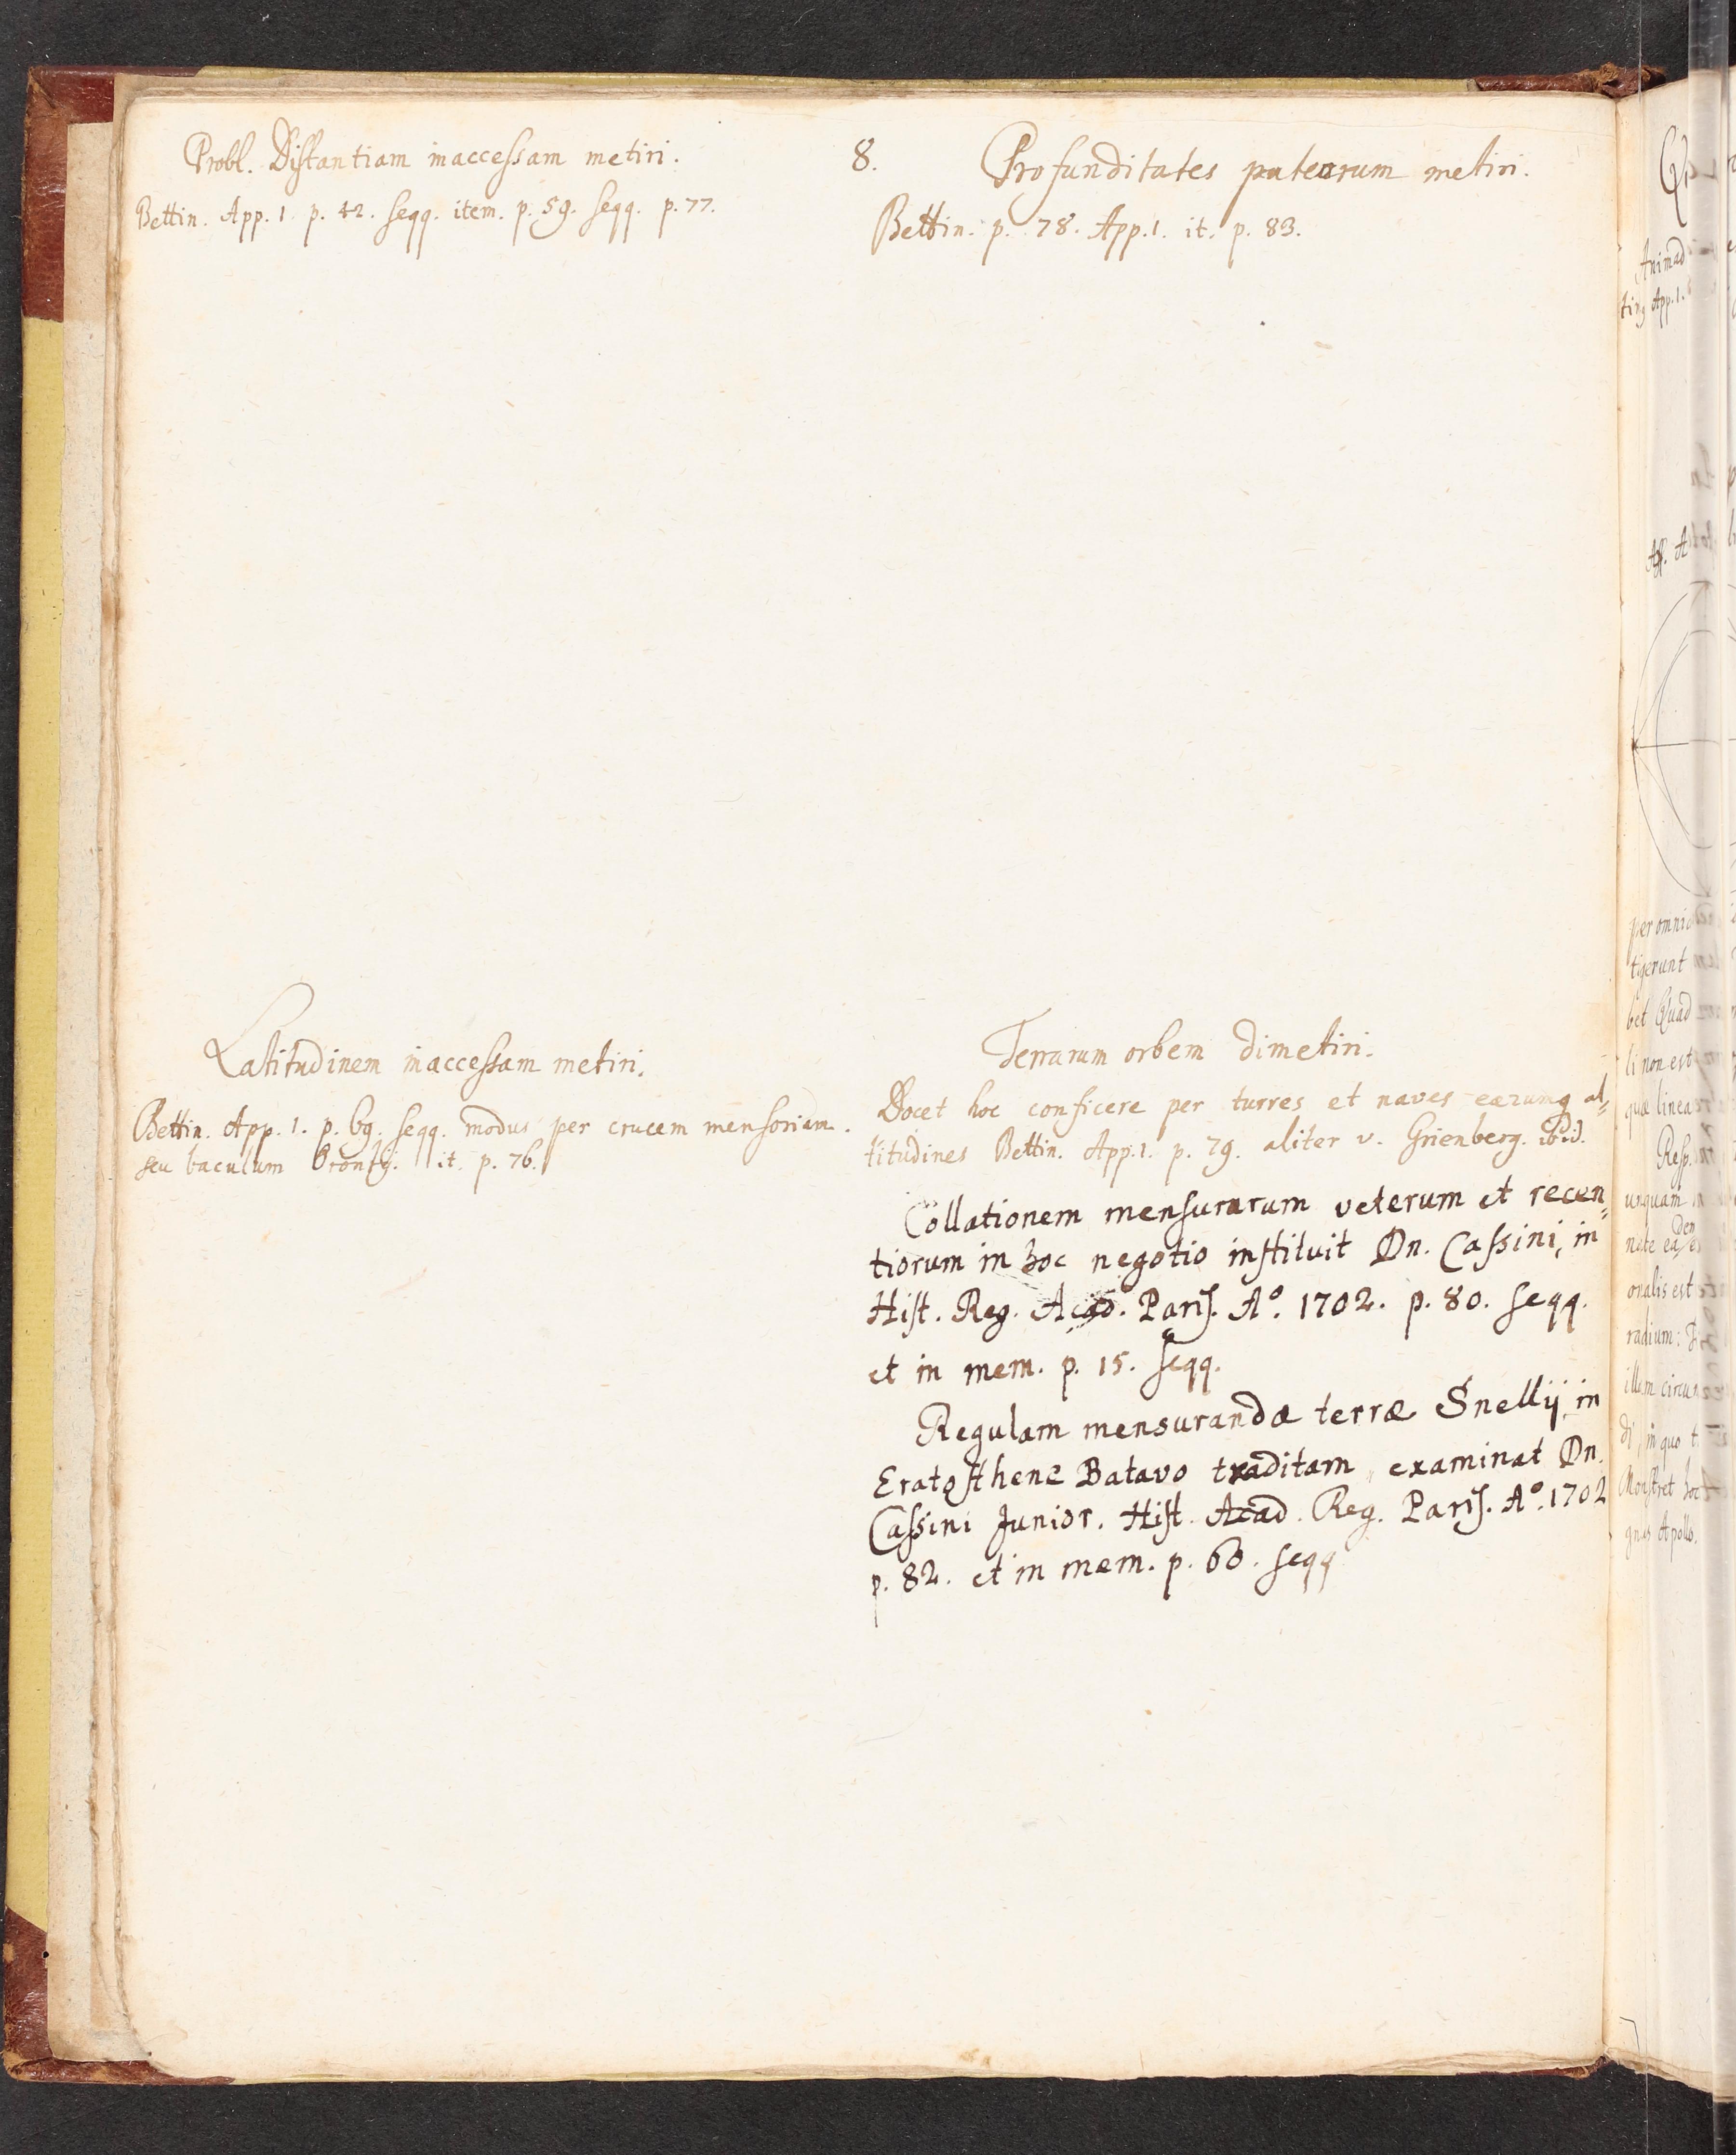 Probl. Distantiam inaccessam metiri.
Bettin. App. 1. p. 42. seqq. item. p. 59. seqq. p. 77.
Latitudinem inaccessam metiri.
Bettin. App. 1. p. 69. seqq. modus per crucem mensoriam.
seu baculum Orontij. it. p. 76.
8.
Profunditates puteorum metiri.
Bettin. p. 78. App. 1. it. p. 83.
Terrarum orbem dimetiri.
Docet hoc conficere per turres et naves earumq al-
titudines Bettin. App. 1. p. 79. aliter v. Grienberg. ibid.
Collationem mensurarum veterum et recen-
tiorum in hoc negotio instituit Dn. Cassini, in
Hist. Reg. Acad. Paris. Aº. 1702. p. 80. seqq.
et in mem. p. 15. seqq.
Regulam mensurandæ terræ Snellij, in
Eratosthene Batavo traditam, examinat Dn.
Cassini Junior. Hist. Acad. Reg. Paris. Aº. 1702
p. 82. et in mem. p. 60. seqq
Animad
App. 1.
per omni
tigerunt
bet Quad
li non est
quæ linea
Resp.
unquam
onalis est
radium:
illum circu
di, in quo t
Monstret hoc
gnus Apollo.